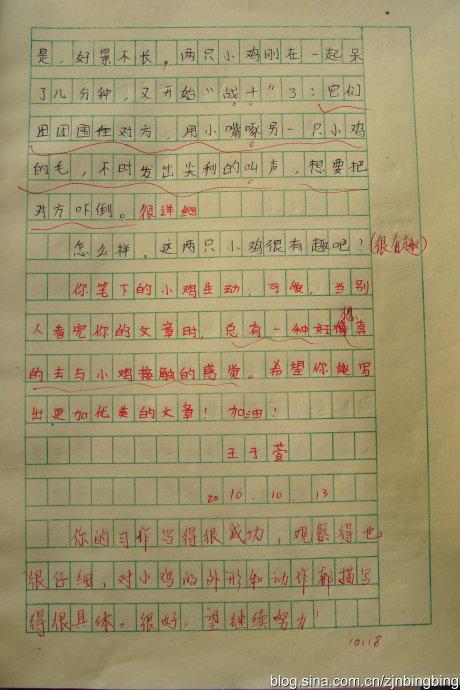 是，好景不长，两只小鸡刚在一起呆
了几分钟，又开始“战斗”了：它们
团团围住对方，用小嘴啄另一只小鸡
的毛，不时发出尖利的叫声，想要把
对方吓倒。很详细
怎么样，这两只小鸡很有趣吧？(很有趣)
你笔下的小鸡生动、可爱，当别
人看完你的文章时，总有一种好想真
的去与小鸡接触的感觉。希望你能写
出更加优美的文章！加油！
王于萱
2010.10.13
你的习作写得很成功，观察得也
很仔细，对小鸡的外形和动作都描写
得很具体。很好，望继续努力！
10.18
blog.sina.com.cn/zjnbingbing